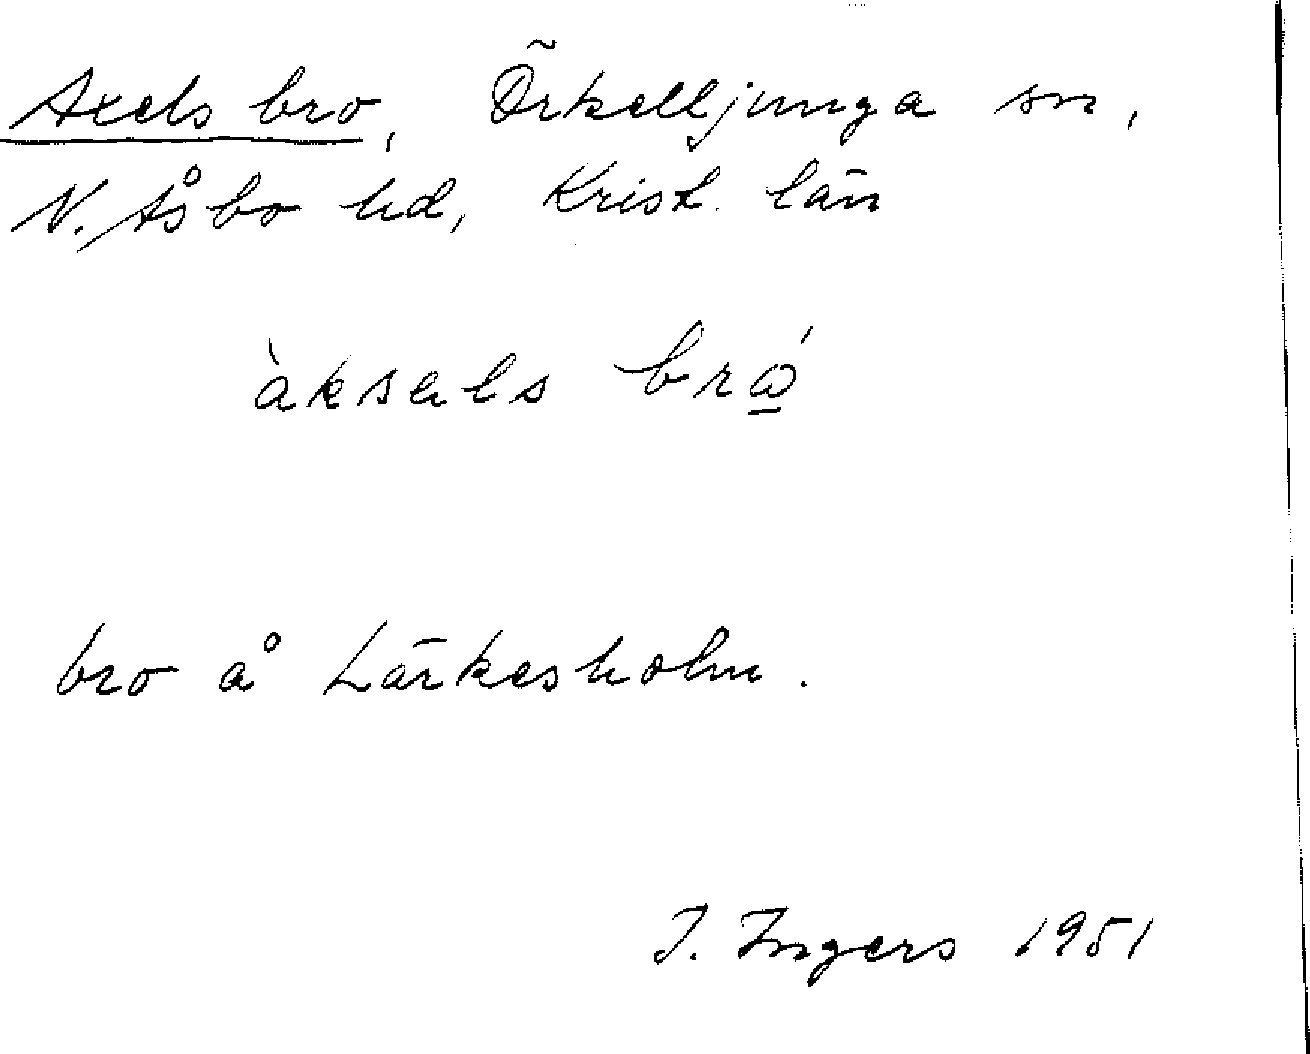 Axels bro, Örkelljunga sn,
N. Åsbo hd, Krist. län
àksals brώ̲
bro å Lärkesholm.
I. Ingers 1951